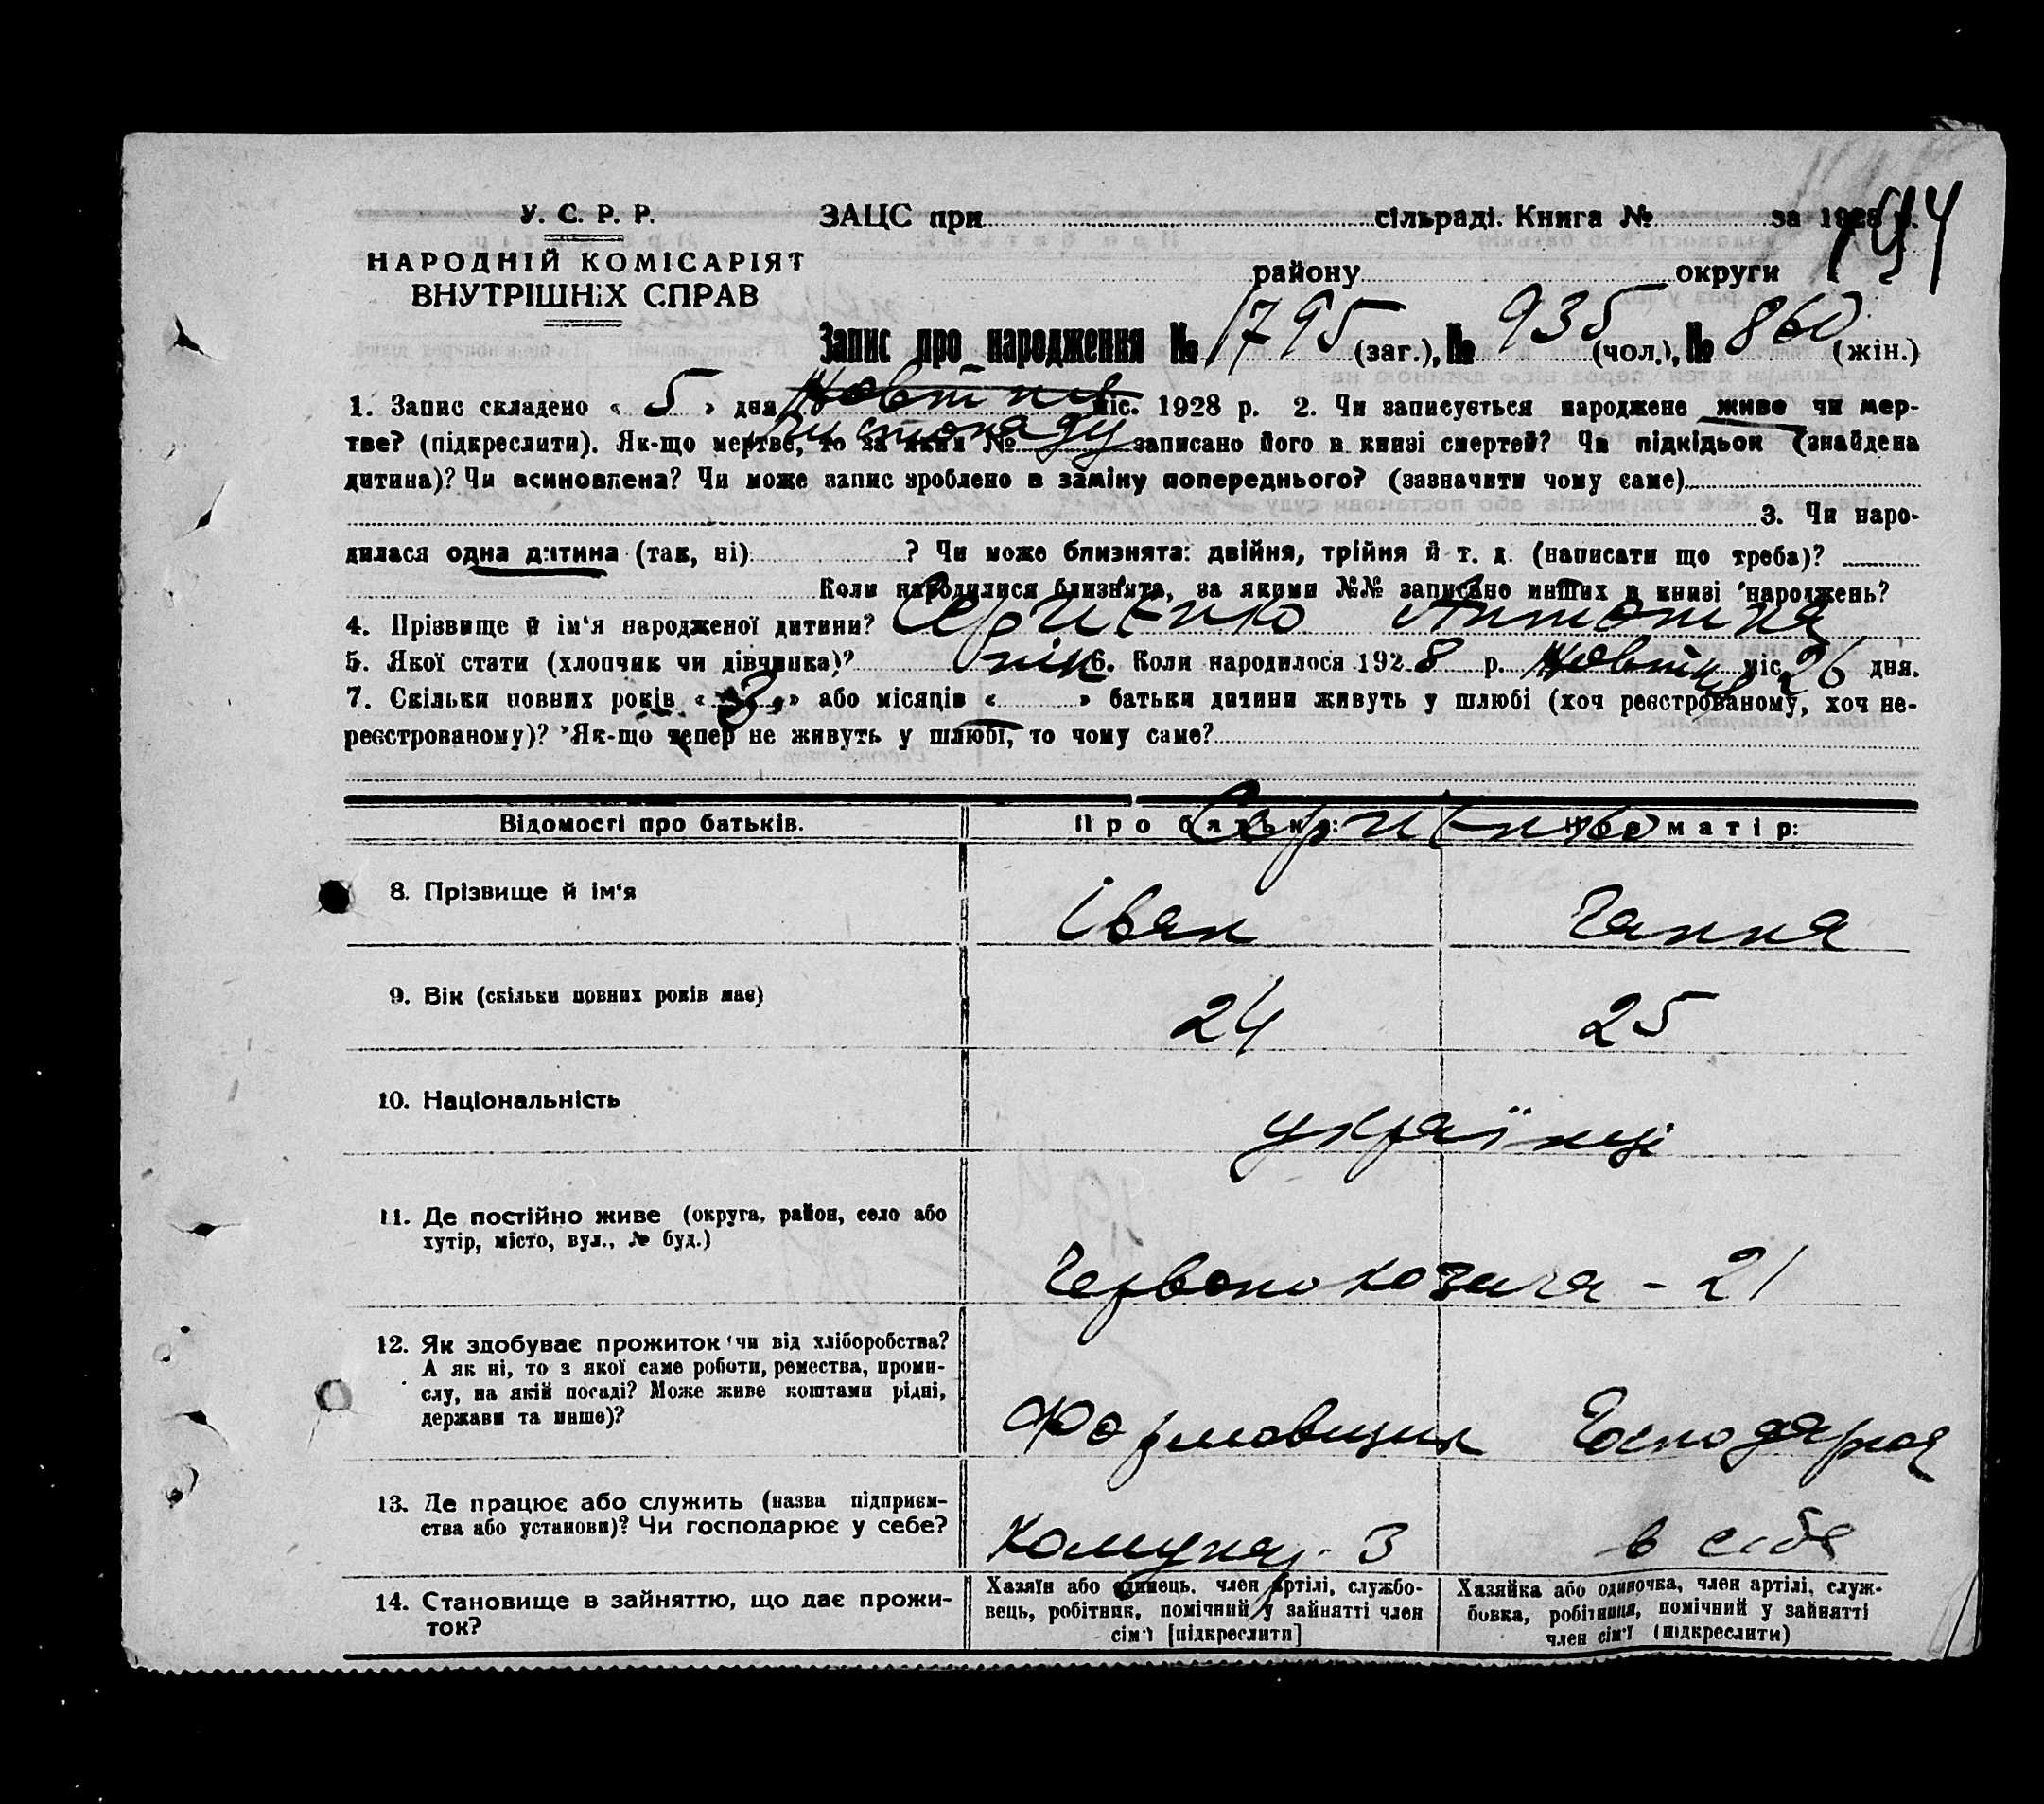 194
У. С. Р. Р.
НАРОДНІЙ КОМІСАРІЯТ
ВНУТРІШНІХ СПРАВ
ЗАЦС при сільраді. Книга № за 1928 р.
району округи
Запис про народження № 1795 (заг.), № 935 (чол.), № 860 (жін.)
1. Запис складено « 5 » дня Жовтня міс. 1928 р. 2. Чи записується народжене живе чи мер-
Листопаду
тве? (підкреслити). Як-що мертве, то за яким № записано його в книзі смертей? Чи підкідьок (знайдена
дитина)? Чи всиновлена? Чи може запис зроблено в заміну попереднього? (зазначити чому саме)
3. Чи наро-
дилася одна дитина (так, ні) ? Чи може близнята: двійня, трійня й т. д. (написати що треба)?
Коли народилися близнята, за якими №№ записано инших в книзі народжень?
4. Прізвище й ім'я народженої дитини? Антоніна
5. Якої стати (хлопчик чи дівчинка)? жін 6. Коли народилося 1928 р. Жовтня міс. 26 дня.
7. Скільки повних років « 3 » або місяців « » батьки дитини живуть у шлюбі (хоч реєстрованому, хоч не-
реєстрованому)? Як-що тепер не живуть у шлюбі, то чому саме?
Відомості про батьків. Про батька: Про матір:
8. Прізвище й ім'я Іван Ганна
9. Вік (скільки повних років має) 24 25
10. Національність українці
11. Де постійно живе (округа, район, село або
хутір, місто, вул., № буд.) Червонокозача - 21
12. Як здобуває прожиток чи від хліборобства?
А як ні, то з якої саме роботи, ремества, проми-
слу, на якій посаді? Може живе коштами рідні,
держави та инше)? Формовщик Господарка
13. Де працює або служить (назва підприєм-
ства або установи)? Чи господарює у себе? Комунар. З в себе
14. Становище в зайняттю, що дає прожи-
ток?
Хазяїн або одинець, член артілі, службо-
вець, робітник, помічний у зайнятті член
сім'ї [підкреслити]
Хазяйка або одиночка, член артілі, служ-
бовка, робітниця, помічний у зайнятті
член сім'ї (підкреслити)